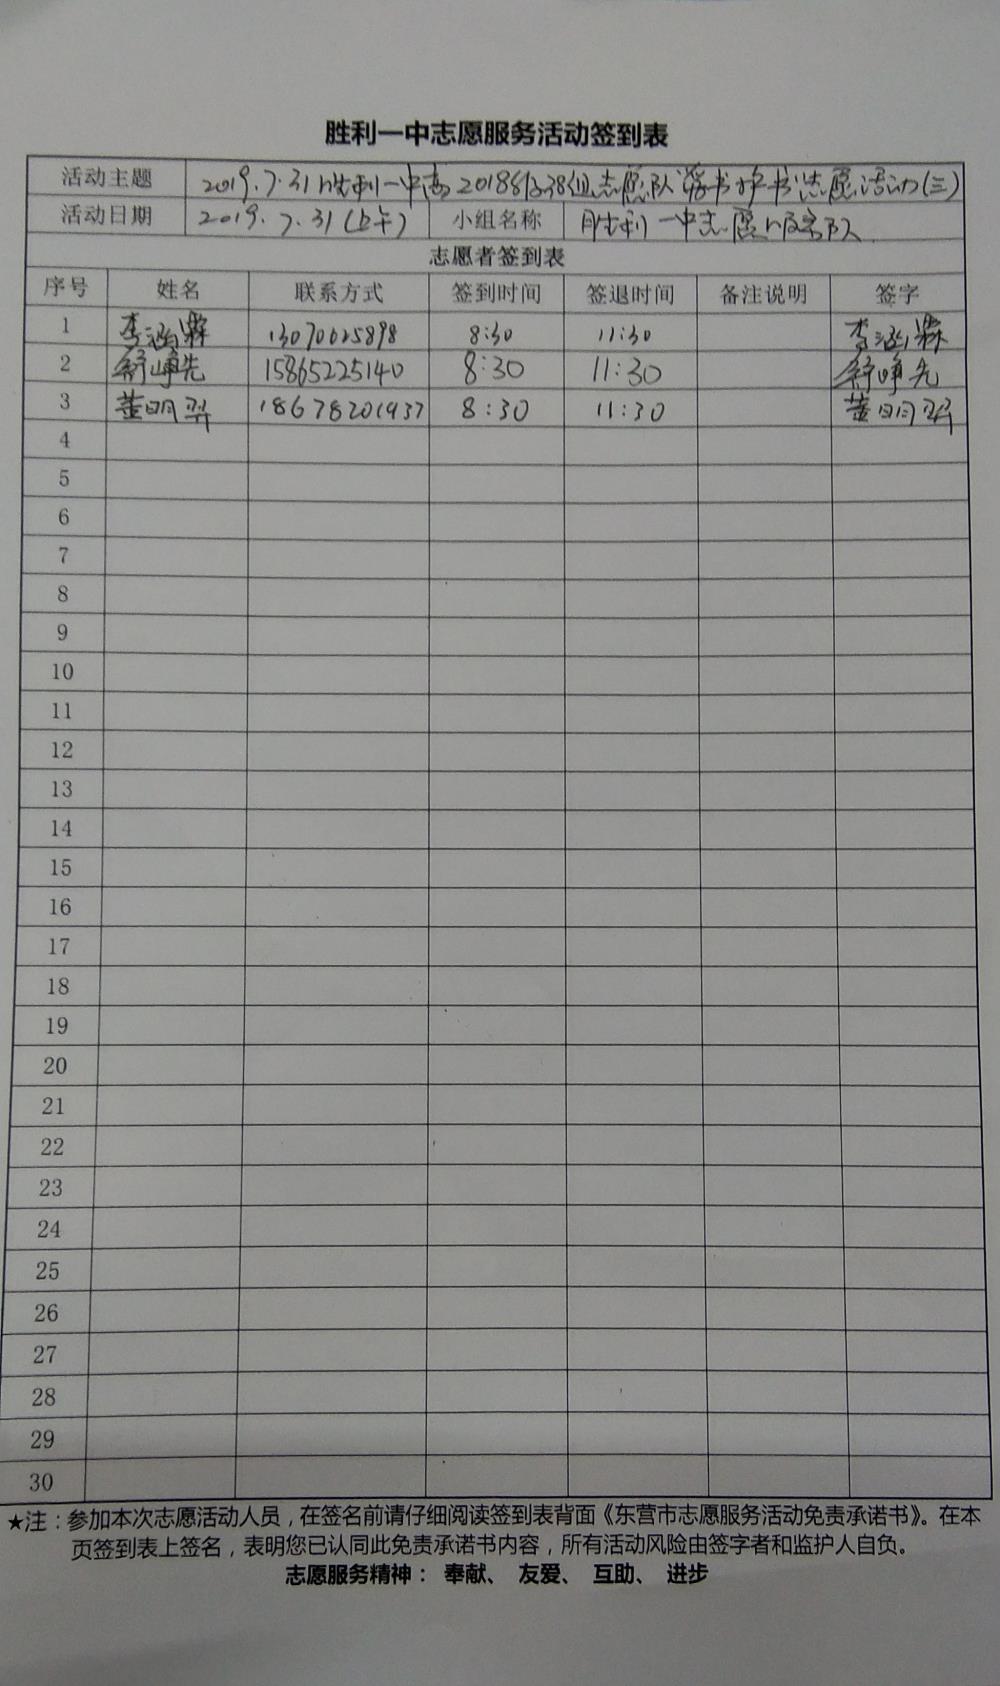 胜利一中志愿服务活动签到表
活动主题 2019.7.31胜利一中高2018级38组志愿队 书护书志愿活动(三)
活动日期 2019.7.31(上午) 小组名称 胜利一中志愿服务队
志愿者签到表
序号 姓名 联系方式 签到时间 签退时间 备注说明 签字
1 李涵霖 13070025898 8:30 11:30 李涵霖
2 舒峥先 15865225140 8:30 11:30 舒峥先
3 董明羿 18678201937 8:30 11:30 董明羿
4
5
6
7
8
9
10
11
12
13
14
15
16
17
18
19
20
21
22
23
24
25
26
27
28
29
30
★注：参加本次志愿活动人员，在签名前请仔细阅读签到表背面《东营市志愿服务活动免责承诺书》。在本
页签到表上签名，表明您已认同此免责承诺书内容，所有活动风险由签字者和监护人自负。
志愿服务精神： 奉献、 友爱、 互助、 进步